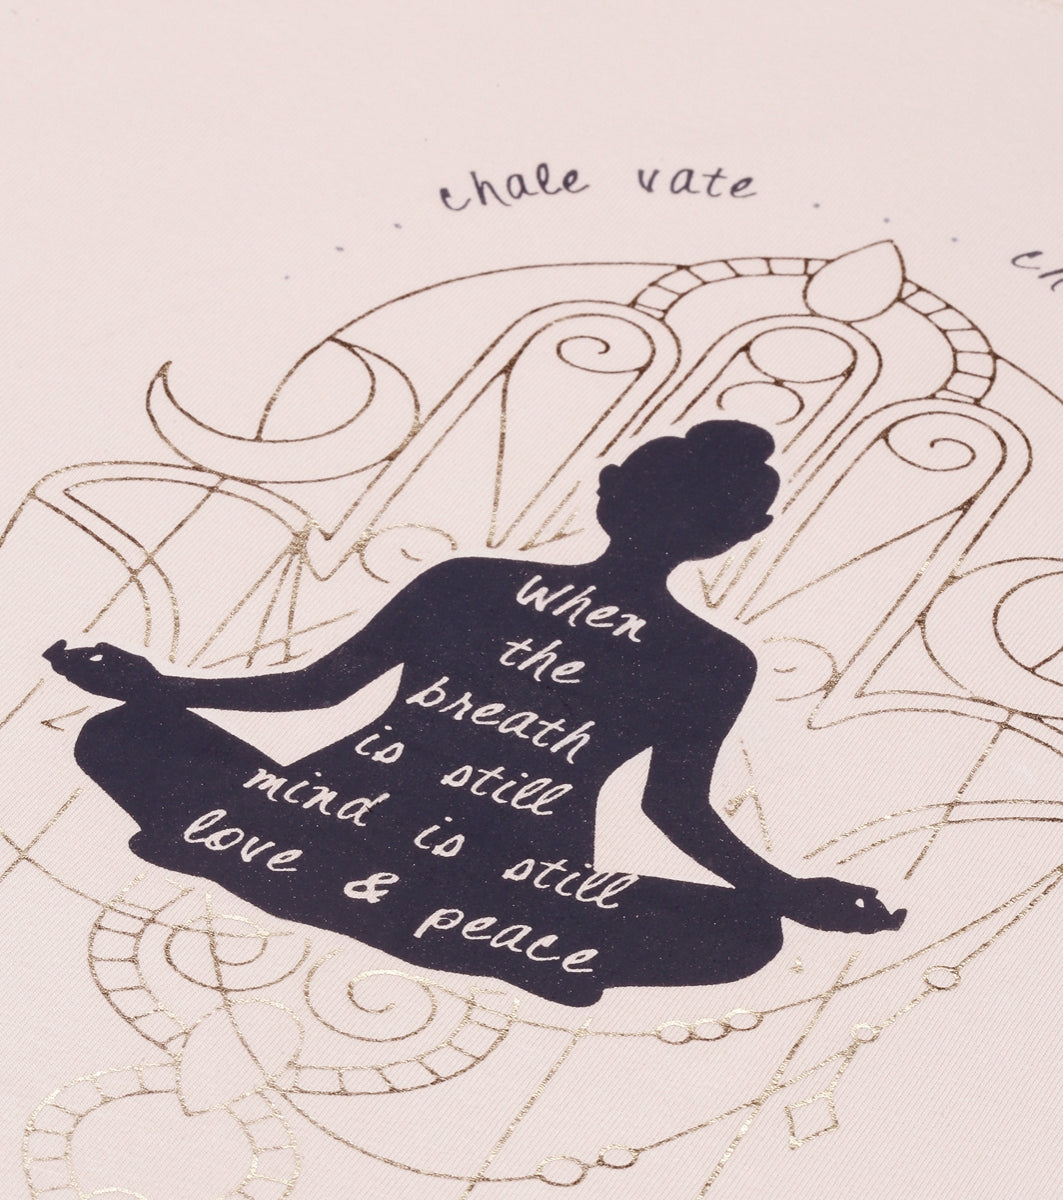 chale vate
ch
When
the
breath
is still
mind is still
love & peace